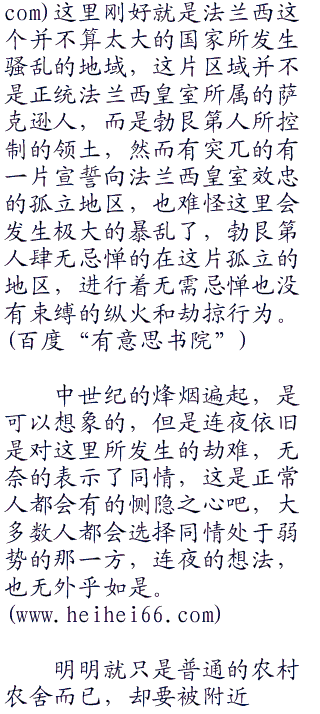 com)这里刚好就是法兰西这
个并不算太大的国家所发生
骚乱的地域，这片区域并不
是正统法兰西皇室所属的萨
克逊人，而是勃艮第人所控
制的领土，然而有突兀的有
一片宣誓向法兰西皇室效忠
的孤立地区，也难怪这里会
发生极大的暴乱了，勃艮第
人肆无忌惮的在这片孤立的
地区，进行着无需忌惮也没
有束缚的纵火和劫掠行为。
(百度“有意思书院”)
中世纪的烽烟遍起，是
可以想象的，但是连夜依旧
是对这里所发生的劫难，无
奈的表示了同情，这是正常
人都会有的恻隐之心吧，大
多数人都会选择同情处于弱
势的那一方，连夜的想法，
也无外乎如是。
(www.heihei66.com)
明明就只是普通的农村
农舍而已，却要被附近